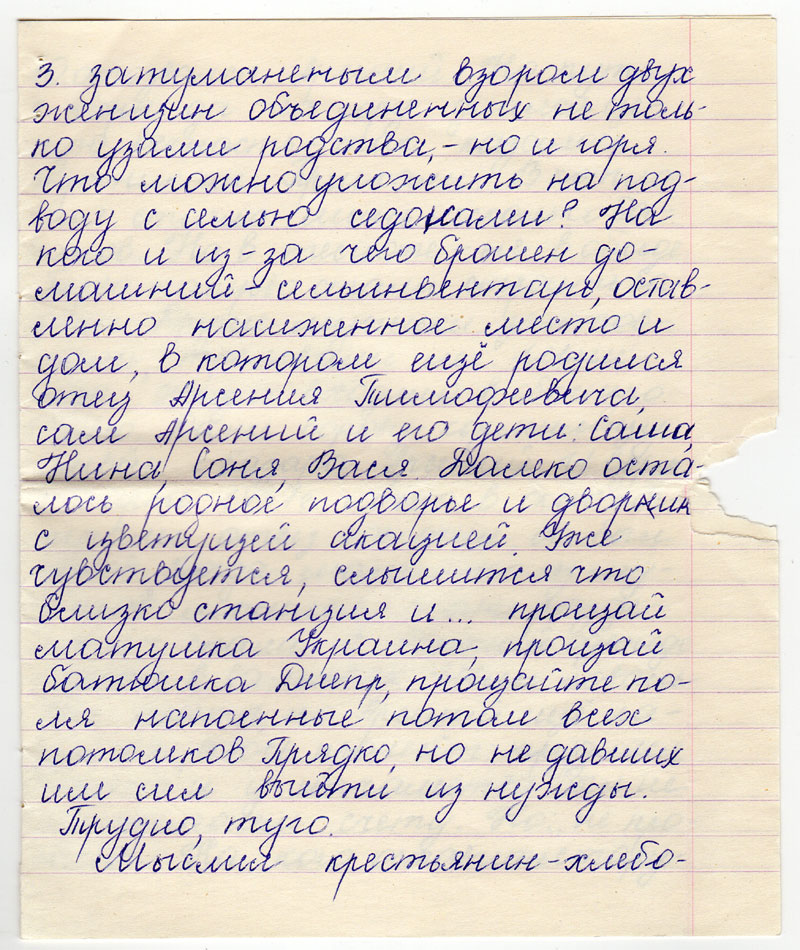 3. затуманеным взором двух
женщин объединенных не толь-
ко узами родства, - но и горя.
Что можно уложить на под-
воду с семью седоками? На
кого и из-за чего брошен до-
машний - сельинвентарь, остав-
ленно насиженное место и
дом, в котором ещё родился
отец Арсения Тимофевича,
сам Арсений и его дети: Саша,
Нина, Соня, Вася. Далеко оста-
лось родное подворье и дворик
с цветущей акацией. Уже
чувствуется, слышится что
близко станция и... прощай
матушка Украина, прощай
батюшка Днепр, прощайте по-
ля напоенные потом всех
потомков Прядко, но не давших
им сил выйти из нужды.
Трудно, туго.
Мыслил крестьянин-хлебо-